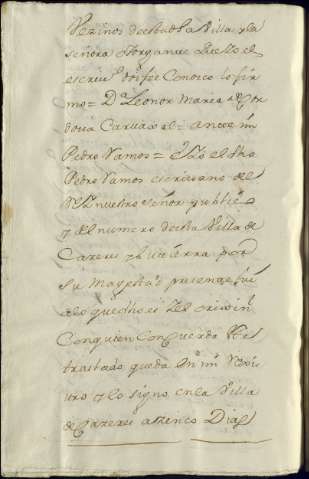 Vezinos desta dha Villa y la
señora otorgante que yo el
escriuº doi fee Conozco lo fir
mo = Dª Leonor Maria de Cor
doua Caruajal = Ante mi
Pedro Ramos = E yo el dho
Pedro Ramos escriuano del
Rey nuestro señor publico
y del numero desta Villa de
Cazeres y su tierra por
su Magestad presente fui
a lo que dho es y del orixin
Con quien Concuerda este
traslado queda en mi rexis
tro y lo signo en la Villa
de Cazeres a zinco Dias